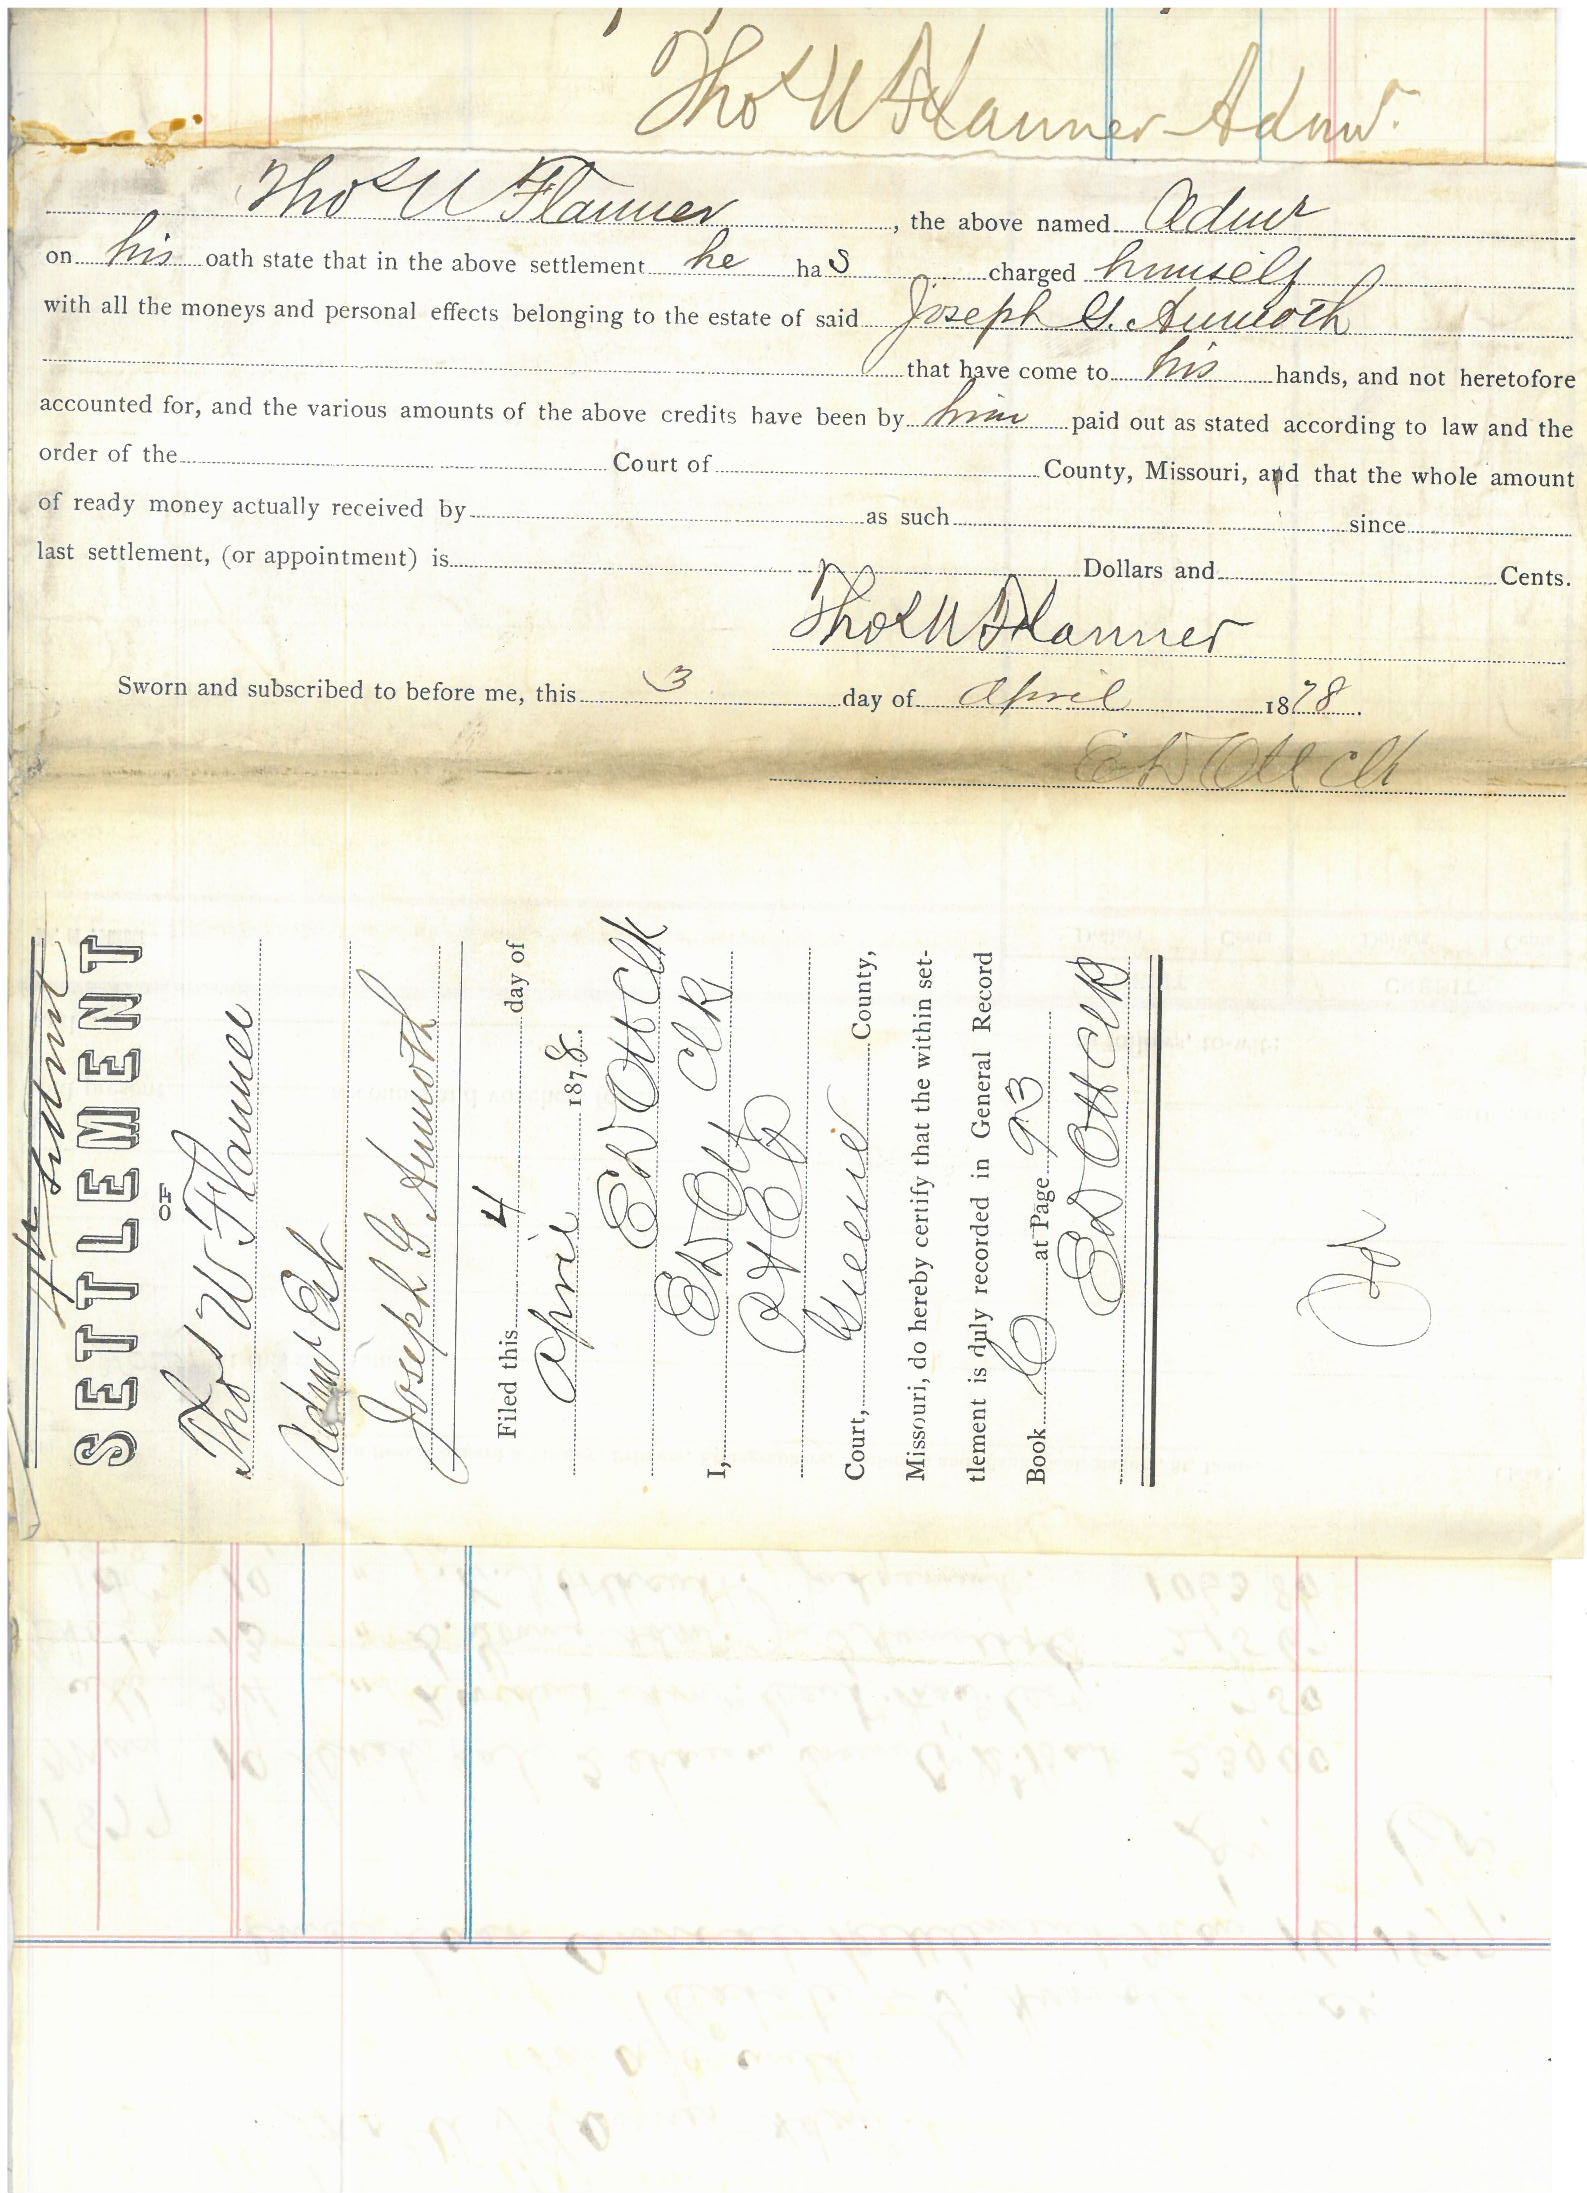 Thos W Flanner Admr.
Thos W Flanner, the above named Admr
on his oath state that in the above settlement he has charged himself
with all the moneys and personal effects belonging to the estate of said Joseph G. Aumoth
that have come to his hands, and not heretofore
accounted for, and the various amounts of the above credits have been by him paid out as stated according to law and the
order of the Court of County, Missouri, and that the whole amount
of ready money actually received by as such since
last settlement, (or appointment) is Dollars and Cents.
Thos W Flanner
Sworn and subscribed to before me, this 3 day of April 1878.
E D Ott Clk
4th
SETTLEMENT
OF
Thos W Flanner
Admr Est
Joseph G Aumoth
Filed this 4 day of
April 1878.
E D Ott Clk
I, E D Ott, Clk
Court, Greene County,
Missouri, do hereby certify that the within set-
tlement is duly recorded in General Record
Book at Page 93
E D Ott Clk